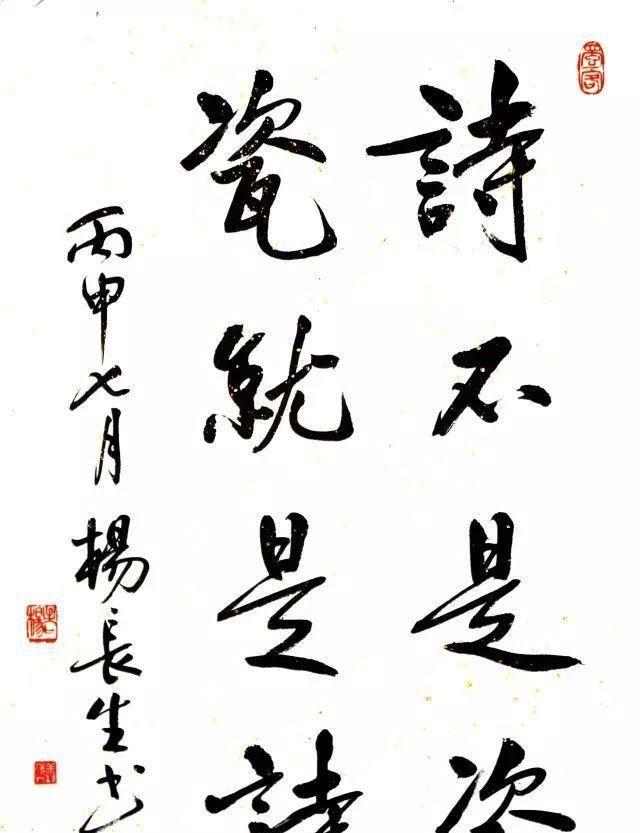 詩不是瓷
瓷就是詩
丙申七月楊長生书